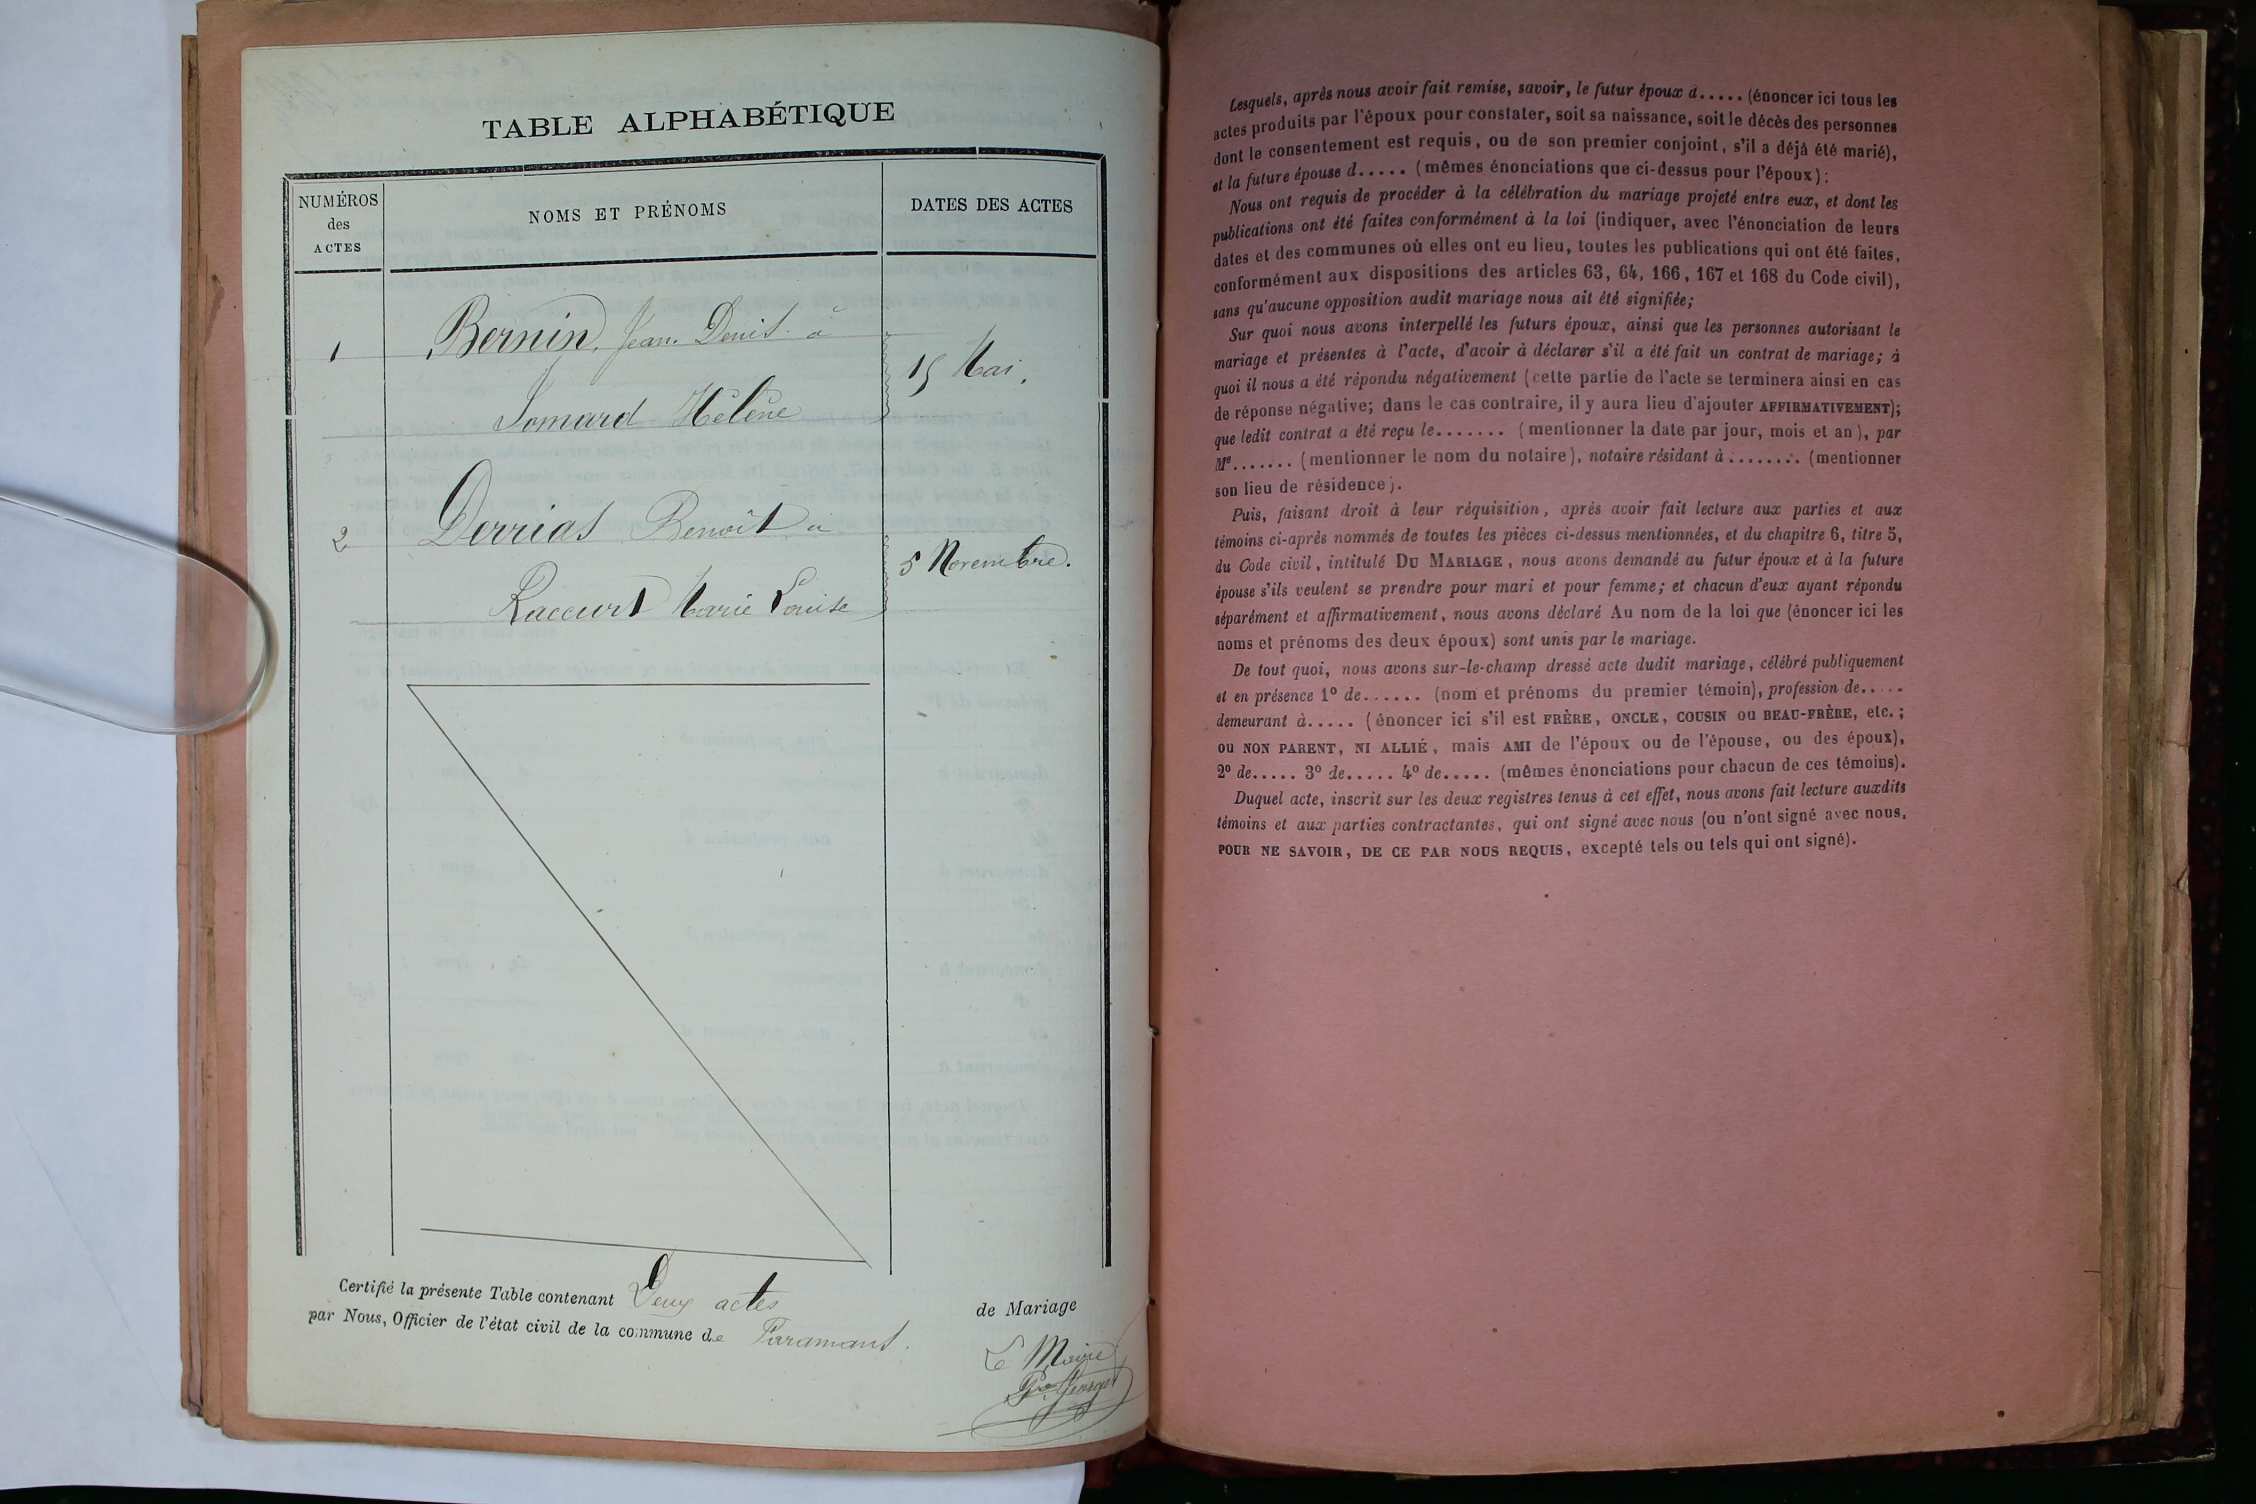 TABLE ALPHABÉTIQUE
NUMÉROS
des
ACTES
NOMS ET PRÉNOMS
DATES DES ACTES
1
Bernin, Jean Denis à
Jomard Hélène
15 Mai.
2
Derrias Benoît à
Raccurt Marie Louise
5 Novembre.
Certifié la présente Table contenant Deux actes de Mariage
par Nous, Officier de l'état civil de la commune de Faramans.
Le Maire
Lesquels, après nous avoir fait remise, savoir, le futur époux d..... (énoncer ici tous les
actes produits par l'époux pour constater, soit sa naissance, soit le décès des personnes
dont le consentement est requis, ou de son premier conjoint, s'il a déjà été marié),
et la future épouse d..... (mêmes énonciations que ci-dessus pour l'époux):
Nous ont requis de procéder à la célébration du mariage projeté entre eux, et dont les
publications ont été faites conformément à la loi (indiquer, avec l'énonciation de leurs
dates et des communes où elles ont eu lieu, toutes les publications qui ont été faites,
conformément aux dispositions des articles 63, 64, 166, 167 et 168 du Code civil),
sans qu'aucune opposition audit mariage nous ait été signifiée;
Sur quoi nous avons interpellé les futurs époux, ainsi que les personnes autorisant le
mariage et présentes à l'acte, d'avoir à déclarer s'il a été fait un contrat de mariage; à
quoi il nous a été répondu négativement (cette partie de l'acte se terminera ainsi en cas
de réponse négative; dans le cas contraire, il y aura lieu d'ajouter AFFIRMATIVEMENT);
que ledit contrat a été reçu le....... (mentionner la date par jour, mois et an), par
Me....... (mentionner le nom du notaire), notaire résidant à ........ (mentionner
son lieu de résidence).
Puis, faisant droit à leur réquisition, après avoir fait lecture aux parties et aux
témoins ci-après nommés de toutes les pièces ci-dessus mentionnées, et du chapitre 6, titre 5,
du Code civil, intitulé DU MARIAGE, nous avons demandé au futur époux et à la future
épouse s'ils veulent se prendre pour mari et pour femme; et chacun d'eux ayant répondu
séparément et affirmativement, nous avons déclaré Au nom de la loi que (énoncer ici les
noms et prénoms des deux époux) sont unis par le mariage.
De tout quoi, nous avons sur-le-champ dressé acte dudit mariage, célébré publiquement
et en présence 1º de...... (nom et prénoms du premier témoin), profession de.....
demeurant à..... (énoncer ici s'il est FRÈRE, ONCLE, COUSIN ou BEAU-FRÈRE, etc.;
ou NON PARENT, NI ALLIÉ, mais AMI de l'époux ou de l'épouse, ou des époux),
2º de..... 3º de..... 4º de..... (mêmes énonciations pour chacun de ces témoins).
Duquel acte, inscrit sur les deux registres tenus à cet effet, nous avons fait lecture auxdits
témoins et aux parties contractantes, qui ont signé avec nous (ou n'ont signé avec nous,
POUR NE SAVOIR, DE CE PAR NOUS REQUIS, excepté tels ou tels qui ont signé).